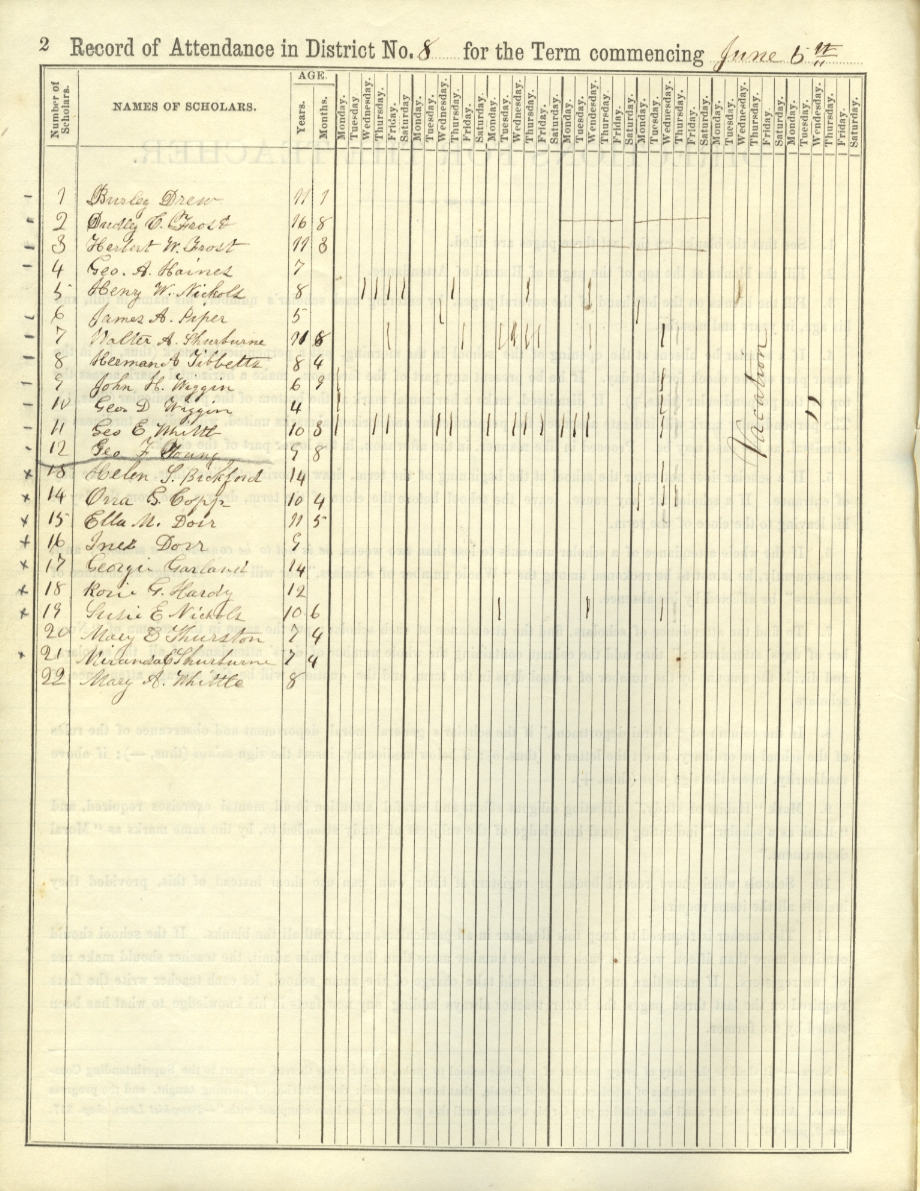 2 Record of Attendance in District No. 8 for the Term commencing June 5th
Number of Scholars.
NAMES OF SCHOLARS.
AGE.
Years. Months.
Monday. Tuesday Wednesday. Thursday. Friday. Saturday Monday. Tuesday. Wednesday. Thursday. Friday. Saturday. Monday. Tuesday. Wednesday. Thursday. Friday. Saturday. Monday. Tuesday. Wendesday. Thursday. Friday. Saturday. Monday. Tuesday. Wednesday. Thursday. Friday. Saturday. Monday. Tuesday. Wednesday. Thursday. Friday. Saturday. Monday. Tuesday. Wendesday. Thursday. Friday. Saturday.
1 Burley Drew 11 1
2 Dudley C. Frost 16 8
3 Herbert W. Frost 11 3
4 Geo. A. Haines 7
5 Henry W. Nichols 8
6 James A. Piper 5
7 Walter A. Shurburne 11 8
8 Herman A Tibbetts 8 4
9 John H. Wiggin 6 9
10 Geo. D Wiggin 4
11 Geo E Whittle 10 3
12 Geo F Young 9 8
13 Helen S. Bickford 14
14 Orra E. Copp 10 4
15 Ella M. Dorr 11 5
16 Inez Dorr 9
17 Georgie Garland 14
18 Rosie G. Hardy 12
19 Susie E Nichols 10 6
20 Mary E Thurston 7 4
21 Miranda C Shurburne 7 4
22 Mary A. Whittle 8
Vacation